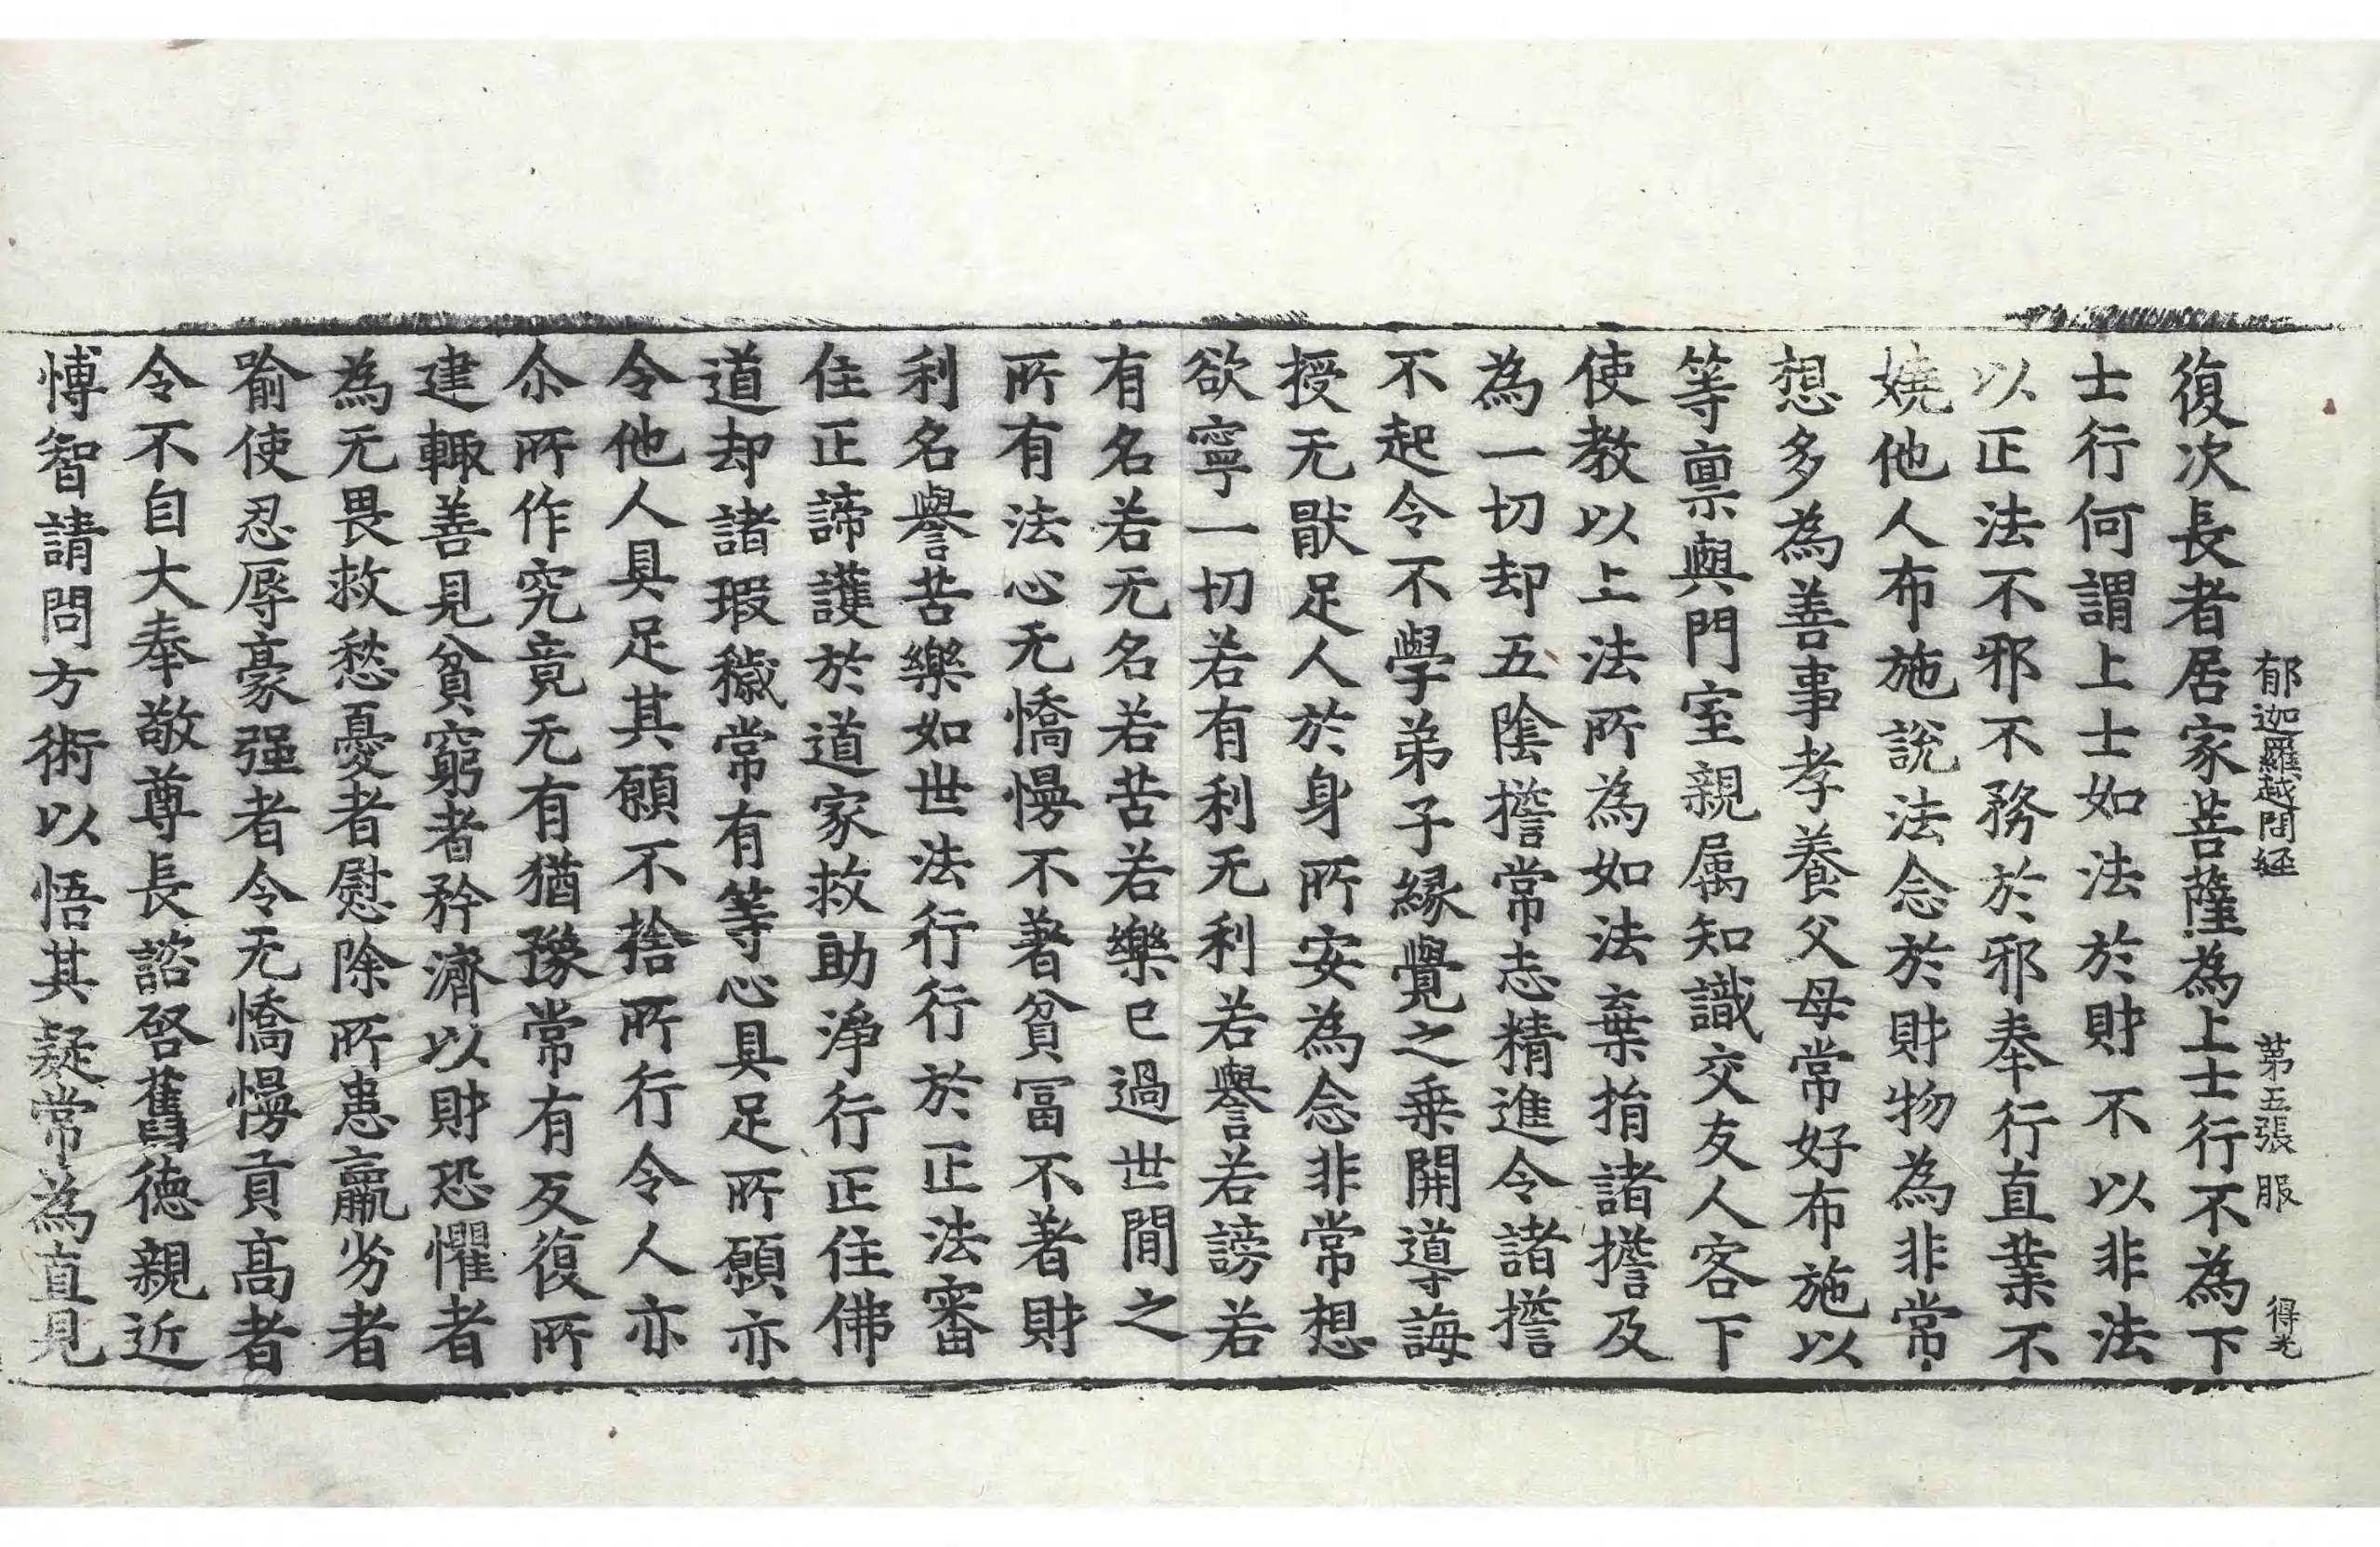 郁迦羅越問經 第五張 服 得光
復次長者居家菩薩為上士行不為下
士行何謂上士如法於財不以非法
以正法不邪不務於邪奉行直業不
嬈他人布施說法念於財物為非常
想多為善事孝養父母常好布施以
等禀與門室親属知識交友人客下
使教以上法所為如法棄捐諸擔及
為一切却五陰擔常志精進令諸擔
不起令不學弟子緣覺之乗開導誨
授无猒足人於身所安為念非常想
欲寧一切若有利无利若譽若謗若
有名若无名若苦若樂已過世閒之
所有法心无憍慢不著貧冨不著財
利名譽苦樂如世法行行於正法審
住正諦護於道家救助淨行正住佛
道却諸瑕穢常有等心具足所願亦
令他人具足其願不捨所行令人亦
尒所作究竟无有猶豫常有反復所
建輙善見貧窮者矜濟以財恐懼者
為无畏救愁憂者慰除所患羸劣者
喻使忍辱豪强者令无憍慢貢高者
令不自大奉敬尊長諮啓舊德親近
愽智請問方術以悟其疑常為直見